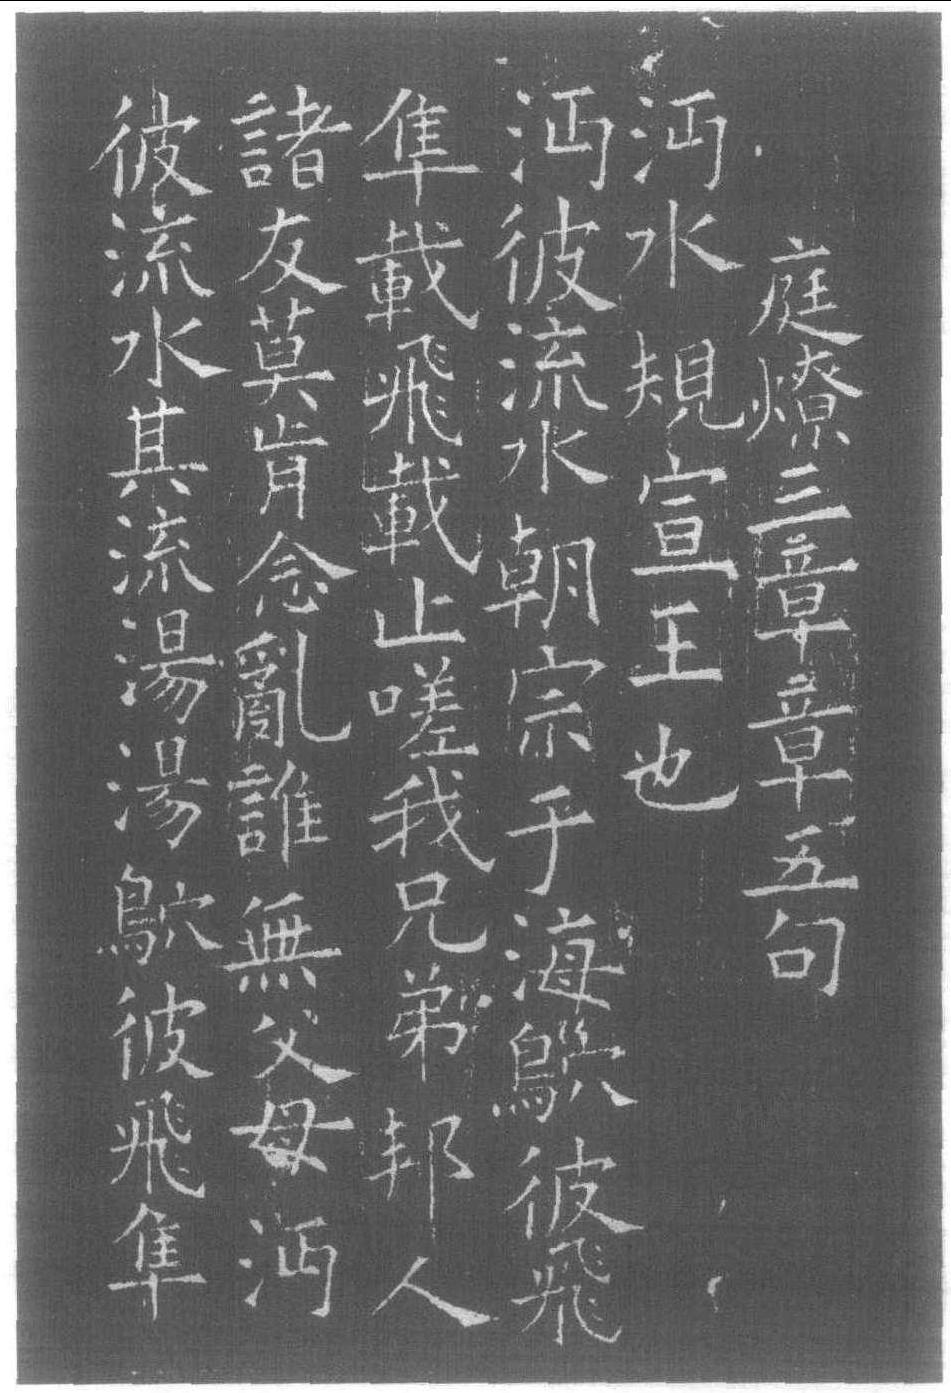 庭燎三章章五句
沔水規宣王也
沔彼流水朝宗于海鴥彼飛
隼載飛載止嗟我兄弟邦人
諸友莫肯念亂誰無父母沔
彼流水其流湯湯鴥彼飛隼